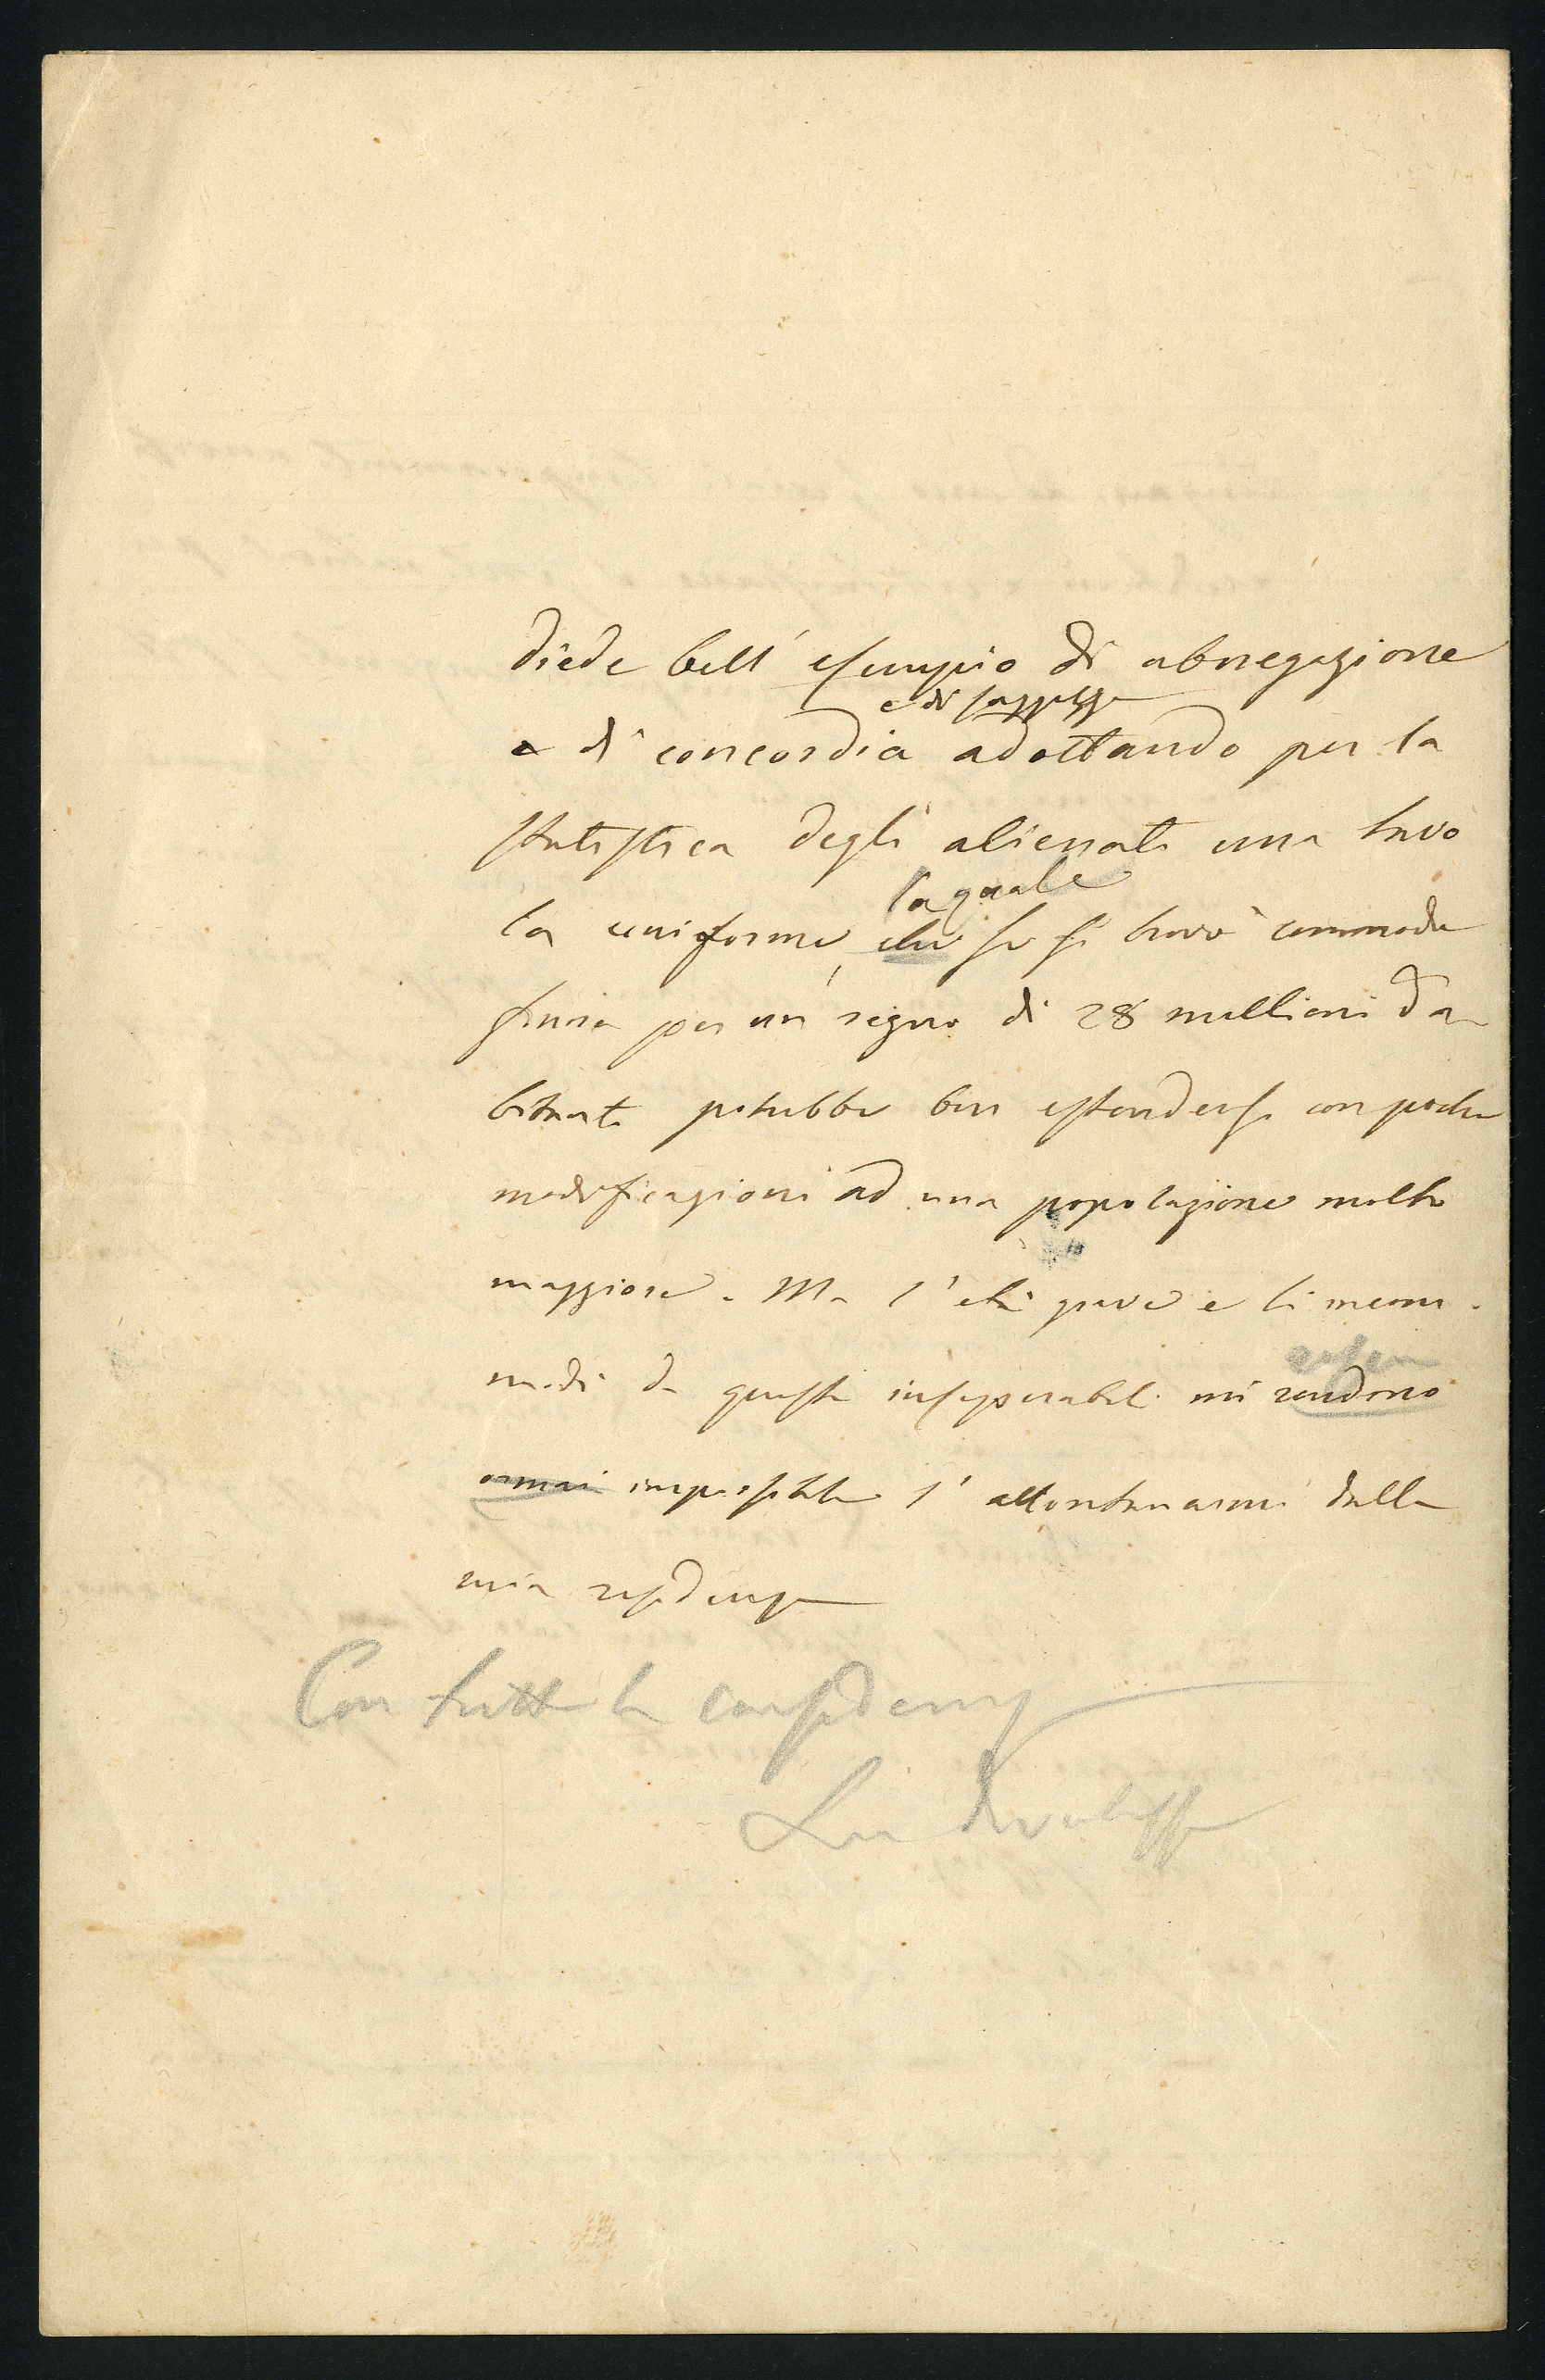 diede bell'esempio di abnegazione
e di saggezza
e di concordia adottando per la
statistica degli alienati una tavo
la quale
la uniforme, che se si trovò commoda
finora per un regno di 28 millioni d'a
bitanti potrebbe ben estendersi con poche
modificazioni ad una popolazione molto
maggiore. Ma l'età grave e li incom-
modi da questa inseparabili mi rendono
ormai impossibile l'allontanarmi dalla
mia residenza
Con tutta la considerazione